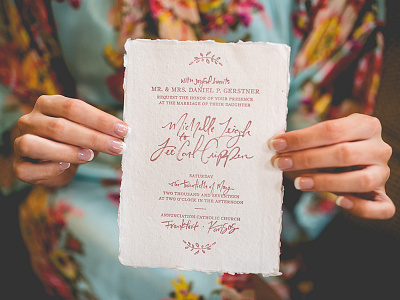 with joyful hearts
MR. & MRS. DANIEL P. GERSTNER
REQUEST THE HONOR OF YOUR PRESENCE
AT THE MARRIAGE OF THEIR DAUGHTER
Michelle Leigh
to
Lee Carl Crippen
SATURDAY
the twentieth of May
TWO THOUSAND AND SEVENTEEN
AT TWO O'CLOCK IN THE AFTERNOON
ANNUNCIATION CATHOLIC CHURCH
Frankfort